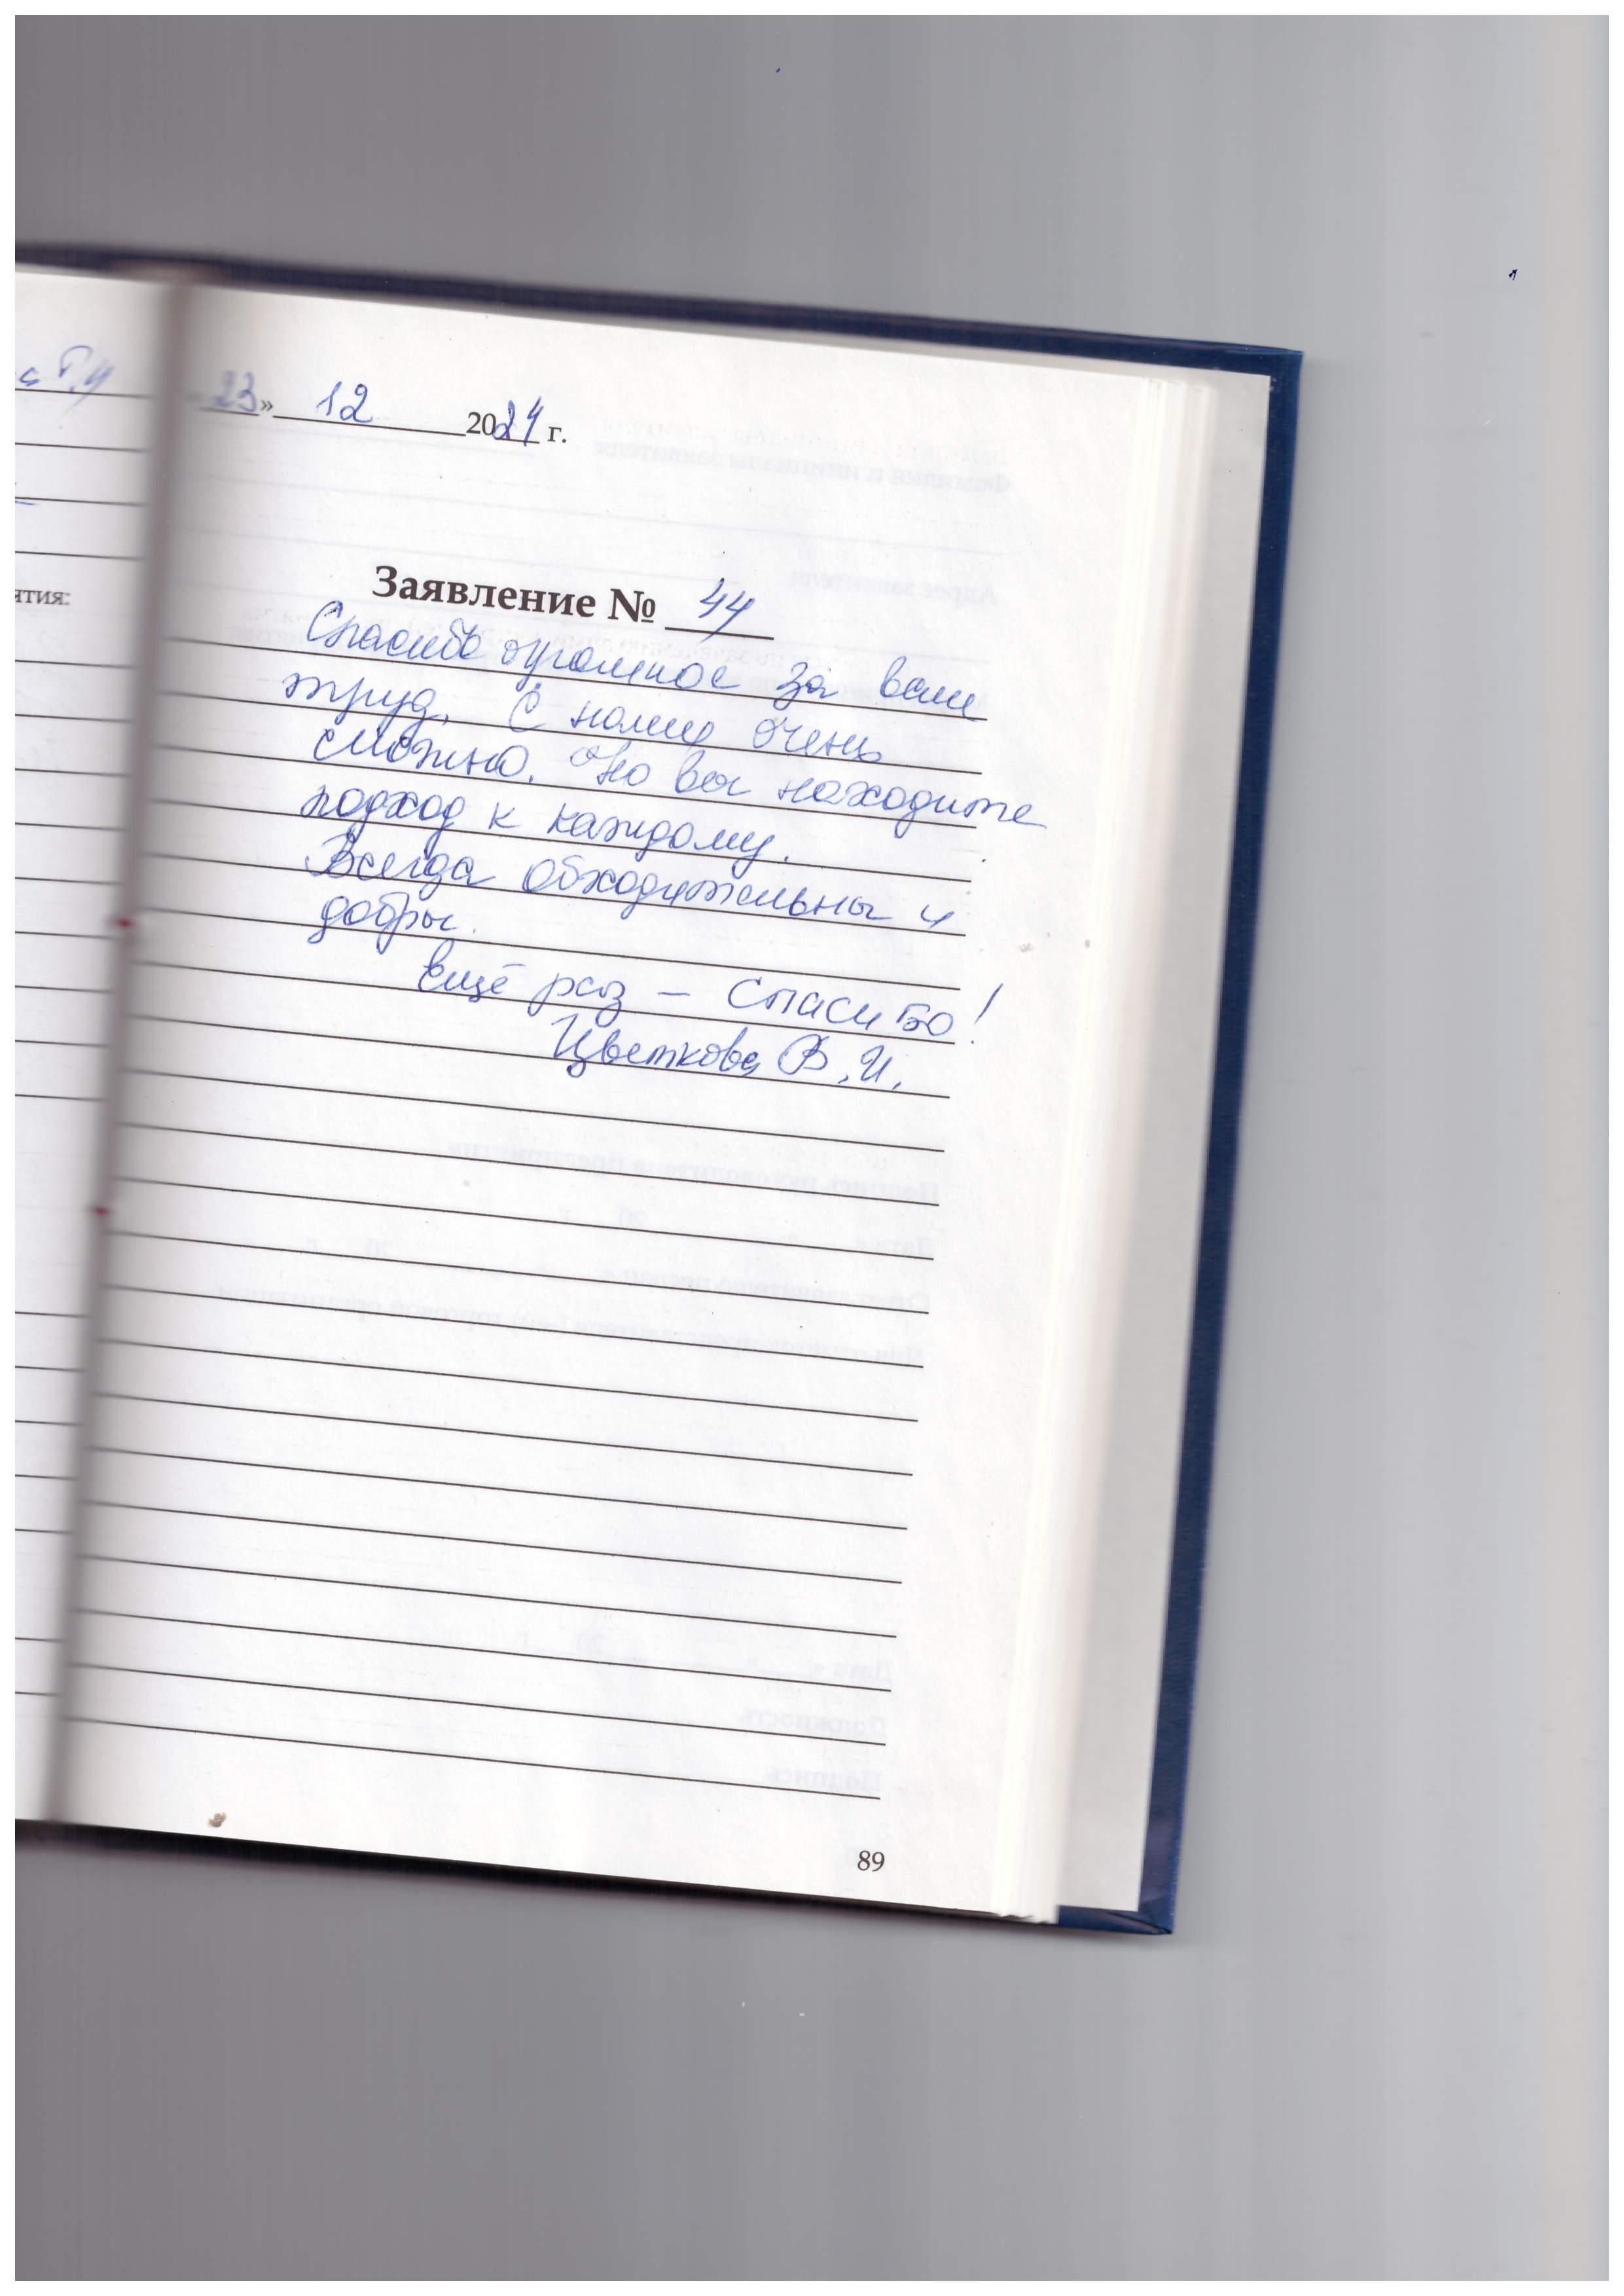 23» 12 2024 г.
Заявление № 44
Спасибо огромное за ваш
труд. С нами очень
сложно. Но вы находите
подход к каждому.
Всегда обходительны и
добры.
Ещё раз – Спасибо!
Цветкова В.И.
ятия:
89